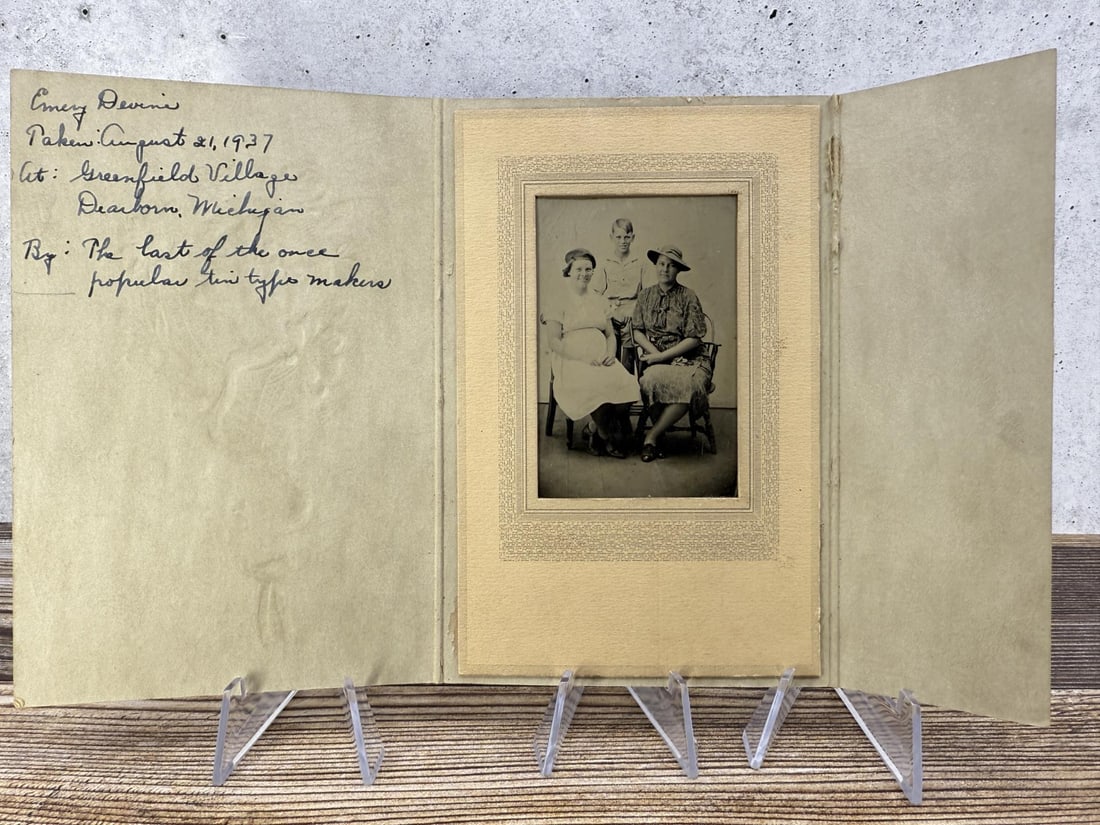 Emery Devine
Taken: August 21, 1937
At: Greenfield Village
Dearborn, Michigan
By: The last of the once
popular tin type makers